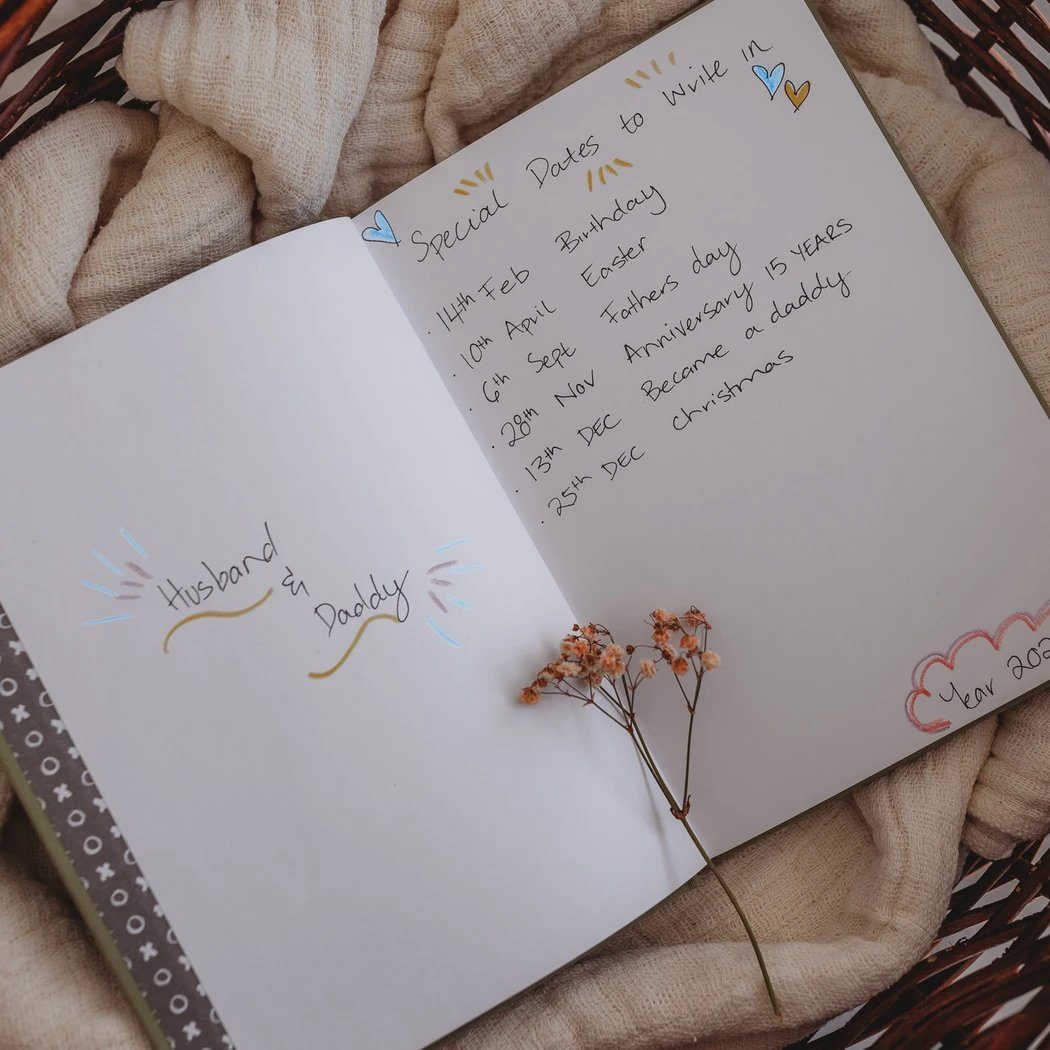 Husband
&
Daddy
Special Dates to Write in
· 14th Feb Birthday
· 10th April Easter
· 6th Sept Fathers day
· 28th Nov Anniversary 15 YEARS
· 13th DEC Became a daddy
· 25th DEC christmas
Year 202